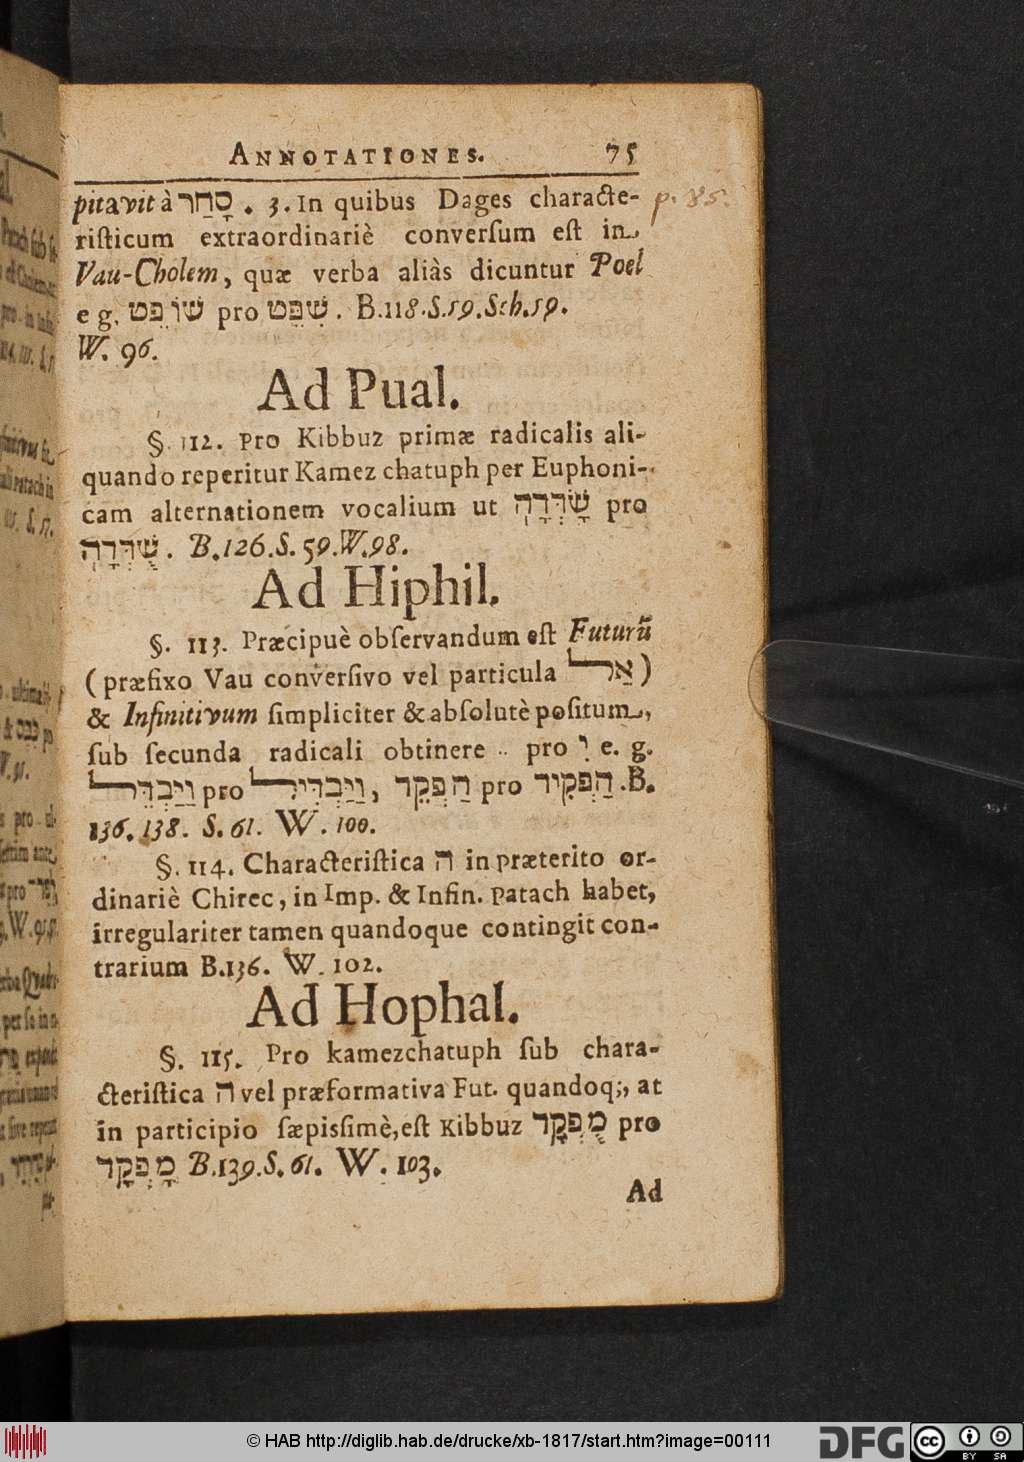 ANNOTATIONES. 75
pitavit à סָחַר. 3. In quibus Dages characte- p. 85.
risticum extraordinariè conversum est in
Vau-Cholem, quæ verba aliàs dicuntur Poel
e g. שׁוֹפֵט pro שִׁפֵּט. B.118.S.59.Sch.59.
W. 96.
Ad Pual.
§. 112. Pro Kibbuz primæ radicalis ali-
quando reperitur Kamez chatuph per Euphoni-
cam alternationem vocalium ut שָׁדְּדָה pro
שֻׁדְּדָה. B.126.S.59.W.98.
Ad Hiphil.
§. 113. Præcipuè observandum est Futurū
(præfixo Vau conversivo vel particula אַל)
& Infinitivum simpliciter & absolutè positum,
sub secunda radicali obtinere .. pro יִ e. g.
וַיַּבְדֵּל pro וַיַּבְדִּיל, הַפְקֵד pro הַפְקִיד. B.
136. 138. S. 61. W. 100.
§. 114. Characteristica ה in præterito or-
dinariè Chirec, in Imp. & Infin. Patach habet,
irregulariter tamen quandoque contingit con-
trarium B.136. W. 102.
Ad Hophal.
§. 115. Pro kamezchatuph sub chara-
cteristica ה vel præformativa Fut. quandoq;, at
in participio sæpissimè, est Kibbuz מֻפְקָד pro
מָפְקָד B.139.S.61. W. 103.
Ad
© HAB http://diglib.hab.de/drucke/xb-1817/start.htm?image=00111
DFG
cc BY SA